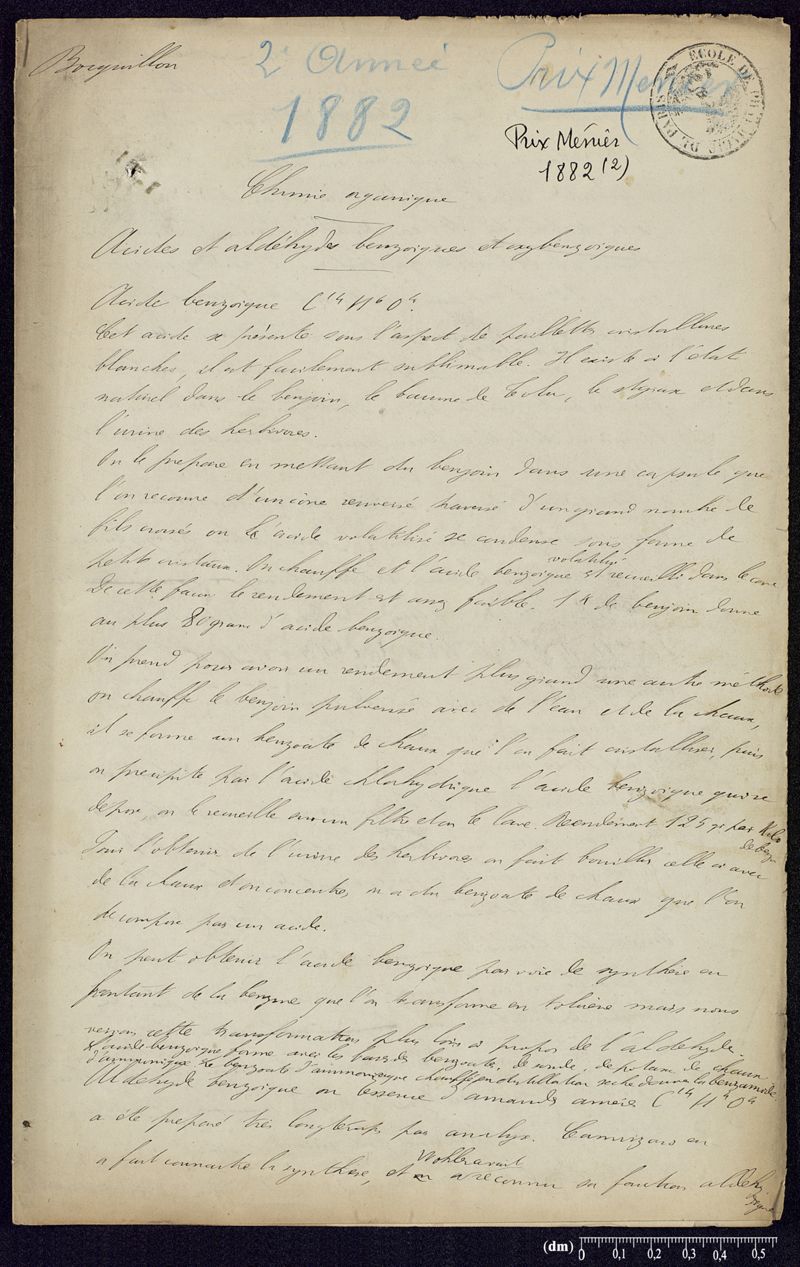 Bocquillon
2e Année
Prix Menier
1882
ÉCOLE DE PHARMACIE DE PARIS
Prix Ménier
1882 (2)
Chimie organique
Acides et aldéhydes benzoiques et oxybenzoiques
Acide benzoique C14 H6 O4.
Cet acide se présente sous l'aspect de paillettes cristallines
blanches, il est facilement sublimable. Il existe à l'état
naturel dans le benjoin, le baume de Tolu, le styrax et dans
l'urine des herbivores.
On le prepare en mettant du benjoin dans une capsule que
l'on recouvre d'un cône renversé traversé d'un grand nombre de
fils croisés ou l'acide volatilisé se condense sous forme de
petits cristaux. On chauffe et l'acide benzoique volatilisé est recueilli dans le cone
De cette façon le rendement est assez faible. 1 K de benjoin donne
au plus 80 gram d'acide benzoique.
On prend pour avoir un rendement plus grand une autre méthode
on chauffe le benjoin pulverisé avec de l'eau et de la chaux,
il se forme un benzoate de chaux que l'on fait cristalliser, puis
on precipite par l'acide chlorhydrique l'acide benzoique qui se
depose on le recueille sur un filtre et on le lave. Rendement 125 gr par Kilo
de benj
Pour l'obtenir de l'urine des herbivores on fait bouillir celle ci avec
de la chaux et on concentre, on a du benzoate de chaux que l'on
decompose par un acide.
On peut obtenir l'acide benzoique par voie de synthese en
partant de la benzine que l'on transforme en toluène mais nous
verrons cette transformation plus loin à propos de l'aldehyde.
L'acide benzoique forme avec les bases des benzoates, de soude, de potasse de chaux
d'ammoniaque. Le benzoate d'ammoniaque chauffé en distillation seche donne la benzamide.
Aldehyde benzoique ou essence d'amandes amères C14 H6 O4
a été preparé très longtemps par analyse. Cannizaro en
a fait connaitre la synthese, et Wohler avait reconnu sa fonction aldehy